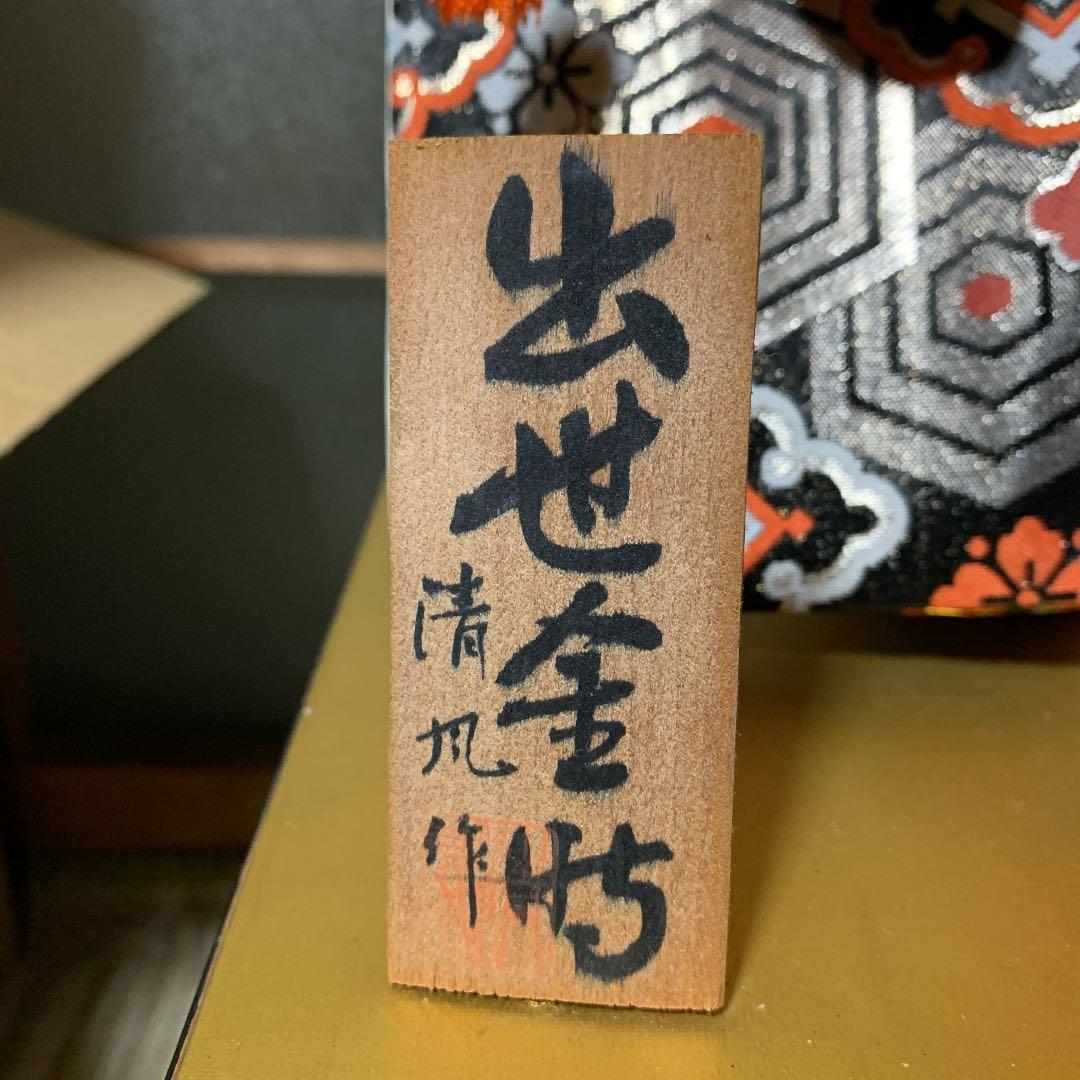 出世金時
清風作